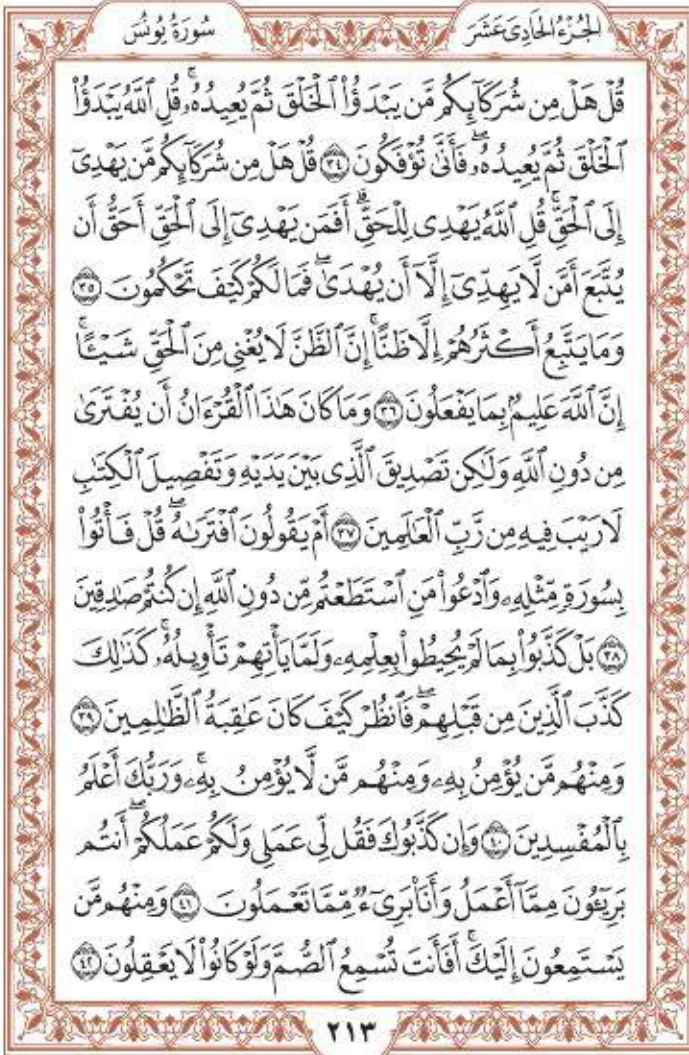 الجُزْءُ الحَادِىَ عَشَرَ
سُورَةُ يُونُسَ
قُلْ هَلْ مِن شُرَكَآئِكُم مَّن يَبْدَؤُا۟ ٱلْخَلْقَ ثُمَّ يُعِيدُهُۥۚ قُلِ ٱللَّهُ يَبْدَؤُا۟
ٱلْخَلْقَ ثُمَّ يُعِيدُهُۥۖ فَأَنَّىٰ تُؤْفَكُونَ ٣٤ قُلْ هَلْ مِن شُرَكَآئِكُم مَّن يَهْدِىٓ
إِلَى ٱلْحَقِّۚ قُلِ ٱللَّهُ يَهْدِى لِلْحَقِّۗ أَفَمَن يَهْدِىٓ إِلَى ٱلْحَقِّ أَحَقُّ أَن
يُتَّبَعَ أَمَّن لَّا يَهِدِّىٓ إِلَّآ أَن يُهْدَىٰۖ فَمَا لَكُمْ كَيْفَ تَحْكُمُونَ ٣٥
وَمَا يَتَّبِعُ أَكْثَرُهُمْ إِلَّا ظَنًّاۚ إِنَّ ٱلظَّنَّ لَا يُغْنِى مِنَ ٱلْحَقِّ شَيْـًٔاۚ
إِنَّ ٱللَّهَ عَلِيمٌۢ بِمَا يَفْعَلُونَ ٣٦ وَمَا كَانَ هَٰذَا ٱلْقُرْءَانُ أَن يُفْتَرَىٰ
مِن دُونِ ٱللَّهِ وَلَٰكِن تَصْدِيقَ ٱلَّذِى بَيْنَ يَدَيْهِ وَتَفْصِيلَ ٱلْكِتَٰبِ
لَا رَيْبَ فِيهِ مِن رَّبِّ ٱلْعَٰلَمِينَ ٣٧ أَمْ يَقُولُونَ ٱفْتَرَىٰهُۖ قُلْ فَأْتُوا۟
بِسُورَةٍ مِّثْلِهِۦ وَٱدْعُوا۟ مَنِ ٱسْتَطَعْتُم مِّن دُونِ ٱللَّهِ إِن كُنتُمْ صَٰدِقِينَ
٣٨ بَلْ كَذَّبُوا۟ بِمَا لَمْ يُحِيطُوا۟ بِعِلْمِهِۦ وَلَمَّا يَأْتِهِمْ تَأْوِيلُهُۥۚ كَذَٰلِكَ
كَذَّبَ ٱلَّذِينَ مِن قَبْلِهِمْۖ فَٱنظُرْ كَيْفَ كَانَ عَٰقِبَةُ ٱلظَّٰلِمِينَ ٣٩
وَمِنْهُم مَّن يُؤْمِنُ بِهِۦ وَمِنْهُم مَّن لَّا يُؤْمِنُ بِهِۦۚ وَرَبُّكَ أَعْلَمُ
بِٱلْمُفْسِدِينَ ٤٠ وَإِن كَذَّبُوكَ فَقُل لِّى عَمَلِى وَلَكُمْ عَمَلُكُمْۖ أَنتُم
بَرِيٓـُٔونَ مِمَّآ أَعْمَلُ وَأَنَا۠ بَرِىٓءٌ مِّمَّا تَعْمَلُونَ ٤١ وَمِنْهُم مَّن
يَسْتَمِعُونَ إِلَيْكَۚ أَفَأَنتَ تُسْمِعُ ٱلصُّمَّ وَلَوْ كَانُوا۟ لَا يَعْقِلُونَ ٤٢
٢١٣